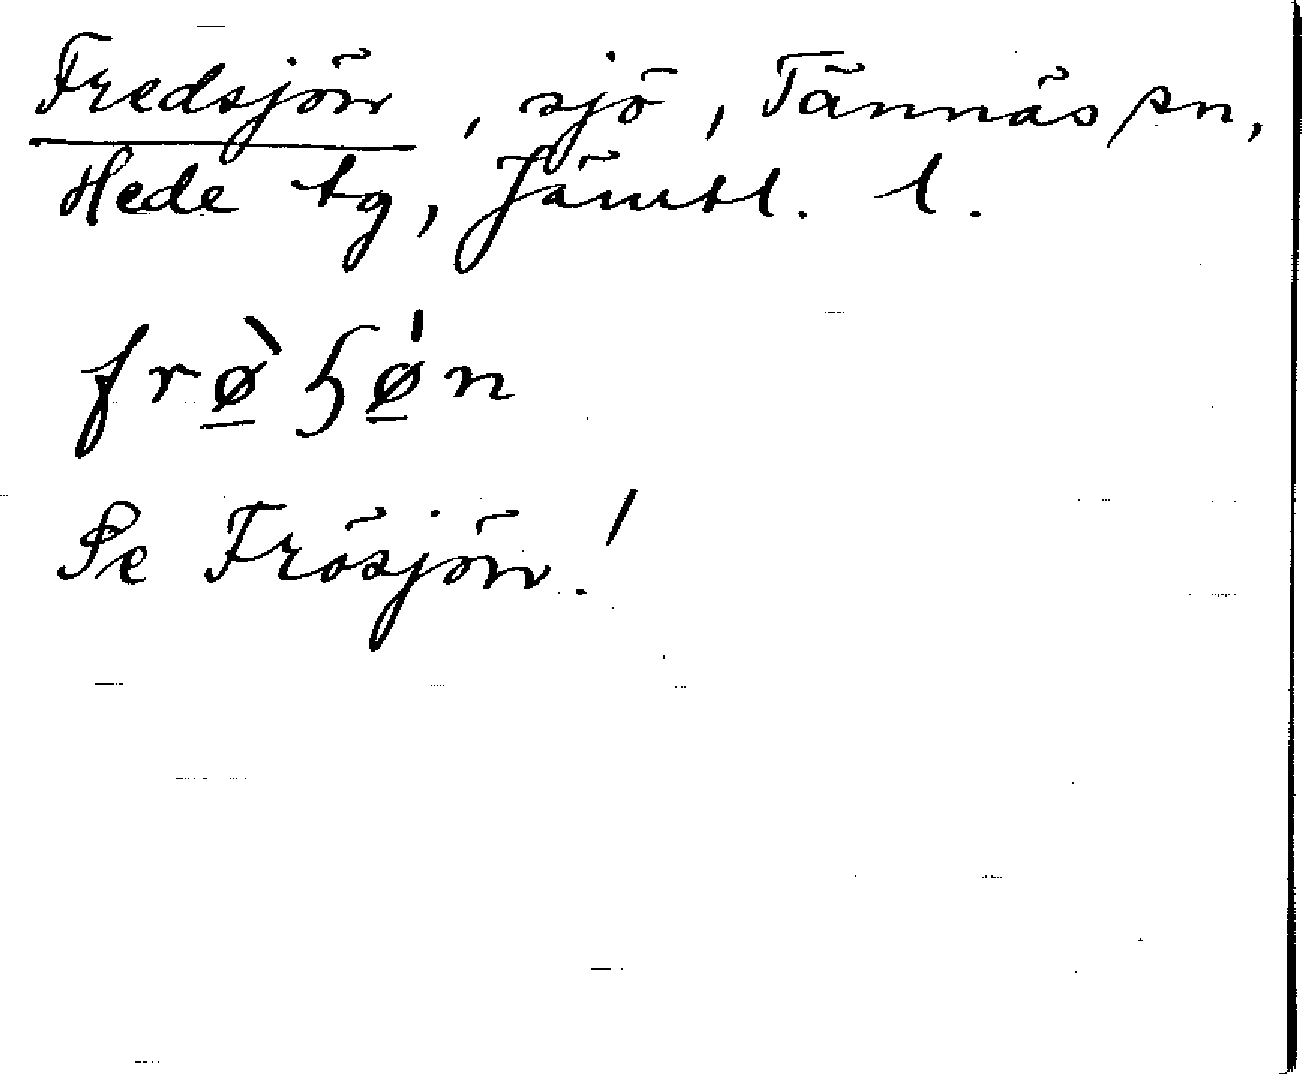 Fredsjön, sjö, Tännäs sn,
Hede tg, Jämtl. l.
frø̱̀ɧǿ̱n
Se Frösjön!